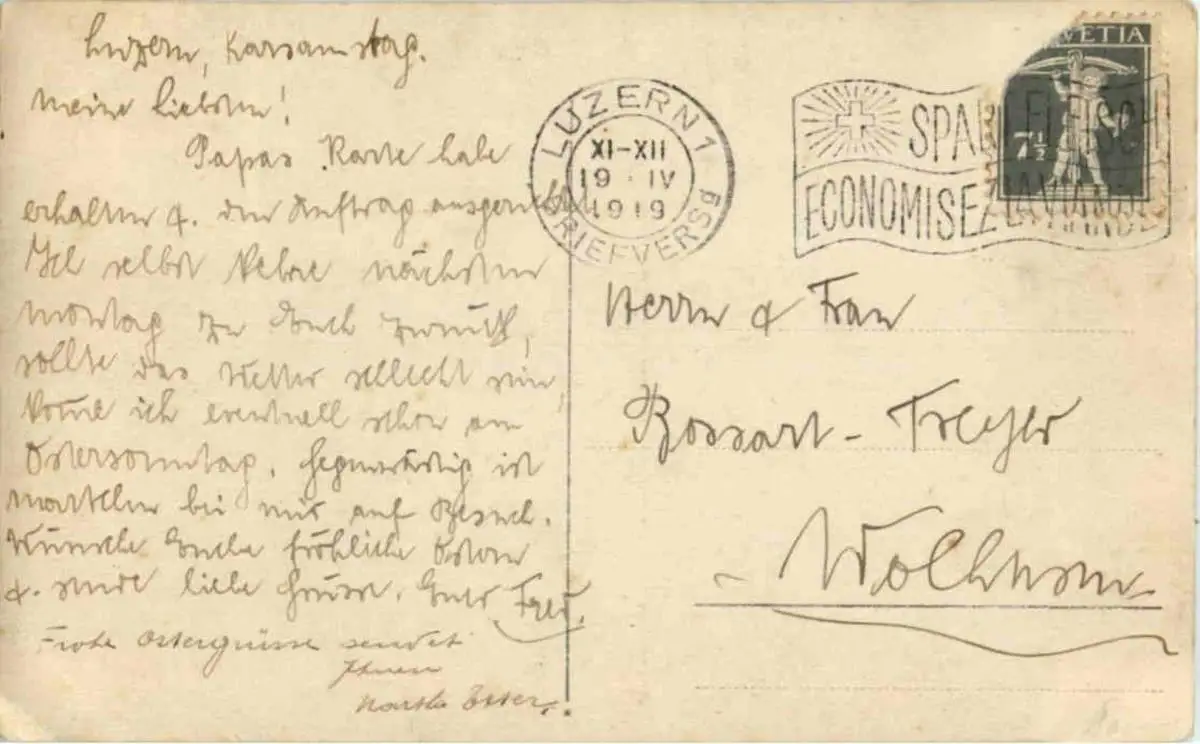 Luzern, Karsamstag.
Meine Liebsten!
Papas Karte habe
erhalten &. den Auftrag ausgerichtet.
Ich selbst kehre nächsten
Montag zu Euch zurück,
sollte das Wetter schlecht sein
kome ich eventuell schon am
Ostersonntag. Gegenwärtig ist
bei mir auf Besuch.
Wünsche Euch fröhliche Ostern
&. sende liebe Grüsse. Euer Fred.
Frohe Ostergrüsse sendet
Ihnen
Martha
LUZERN 1
XI-XII
19. IV
1919
BRIEFVERSd
HELVETIA
7½
SPART FLEISCH
ECONOMISEZ LA VIANDE
Herrn & Frau
Bossart-
Wolhusen